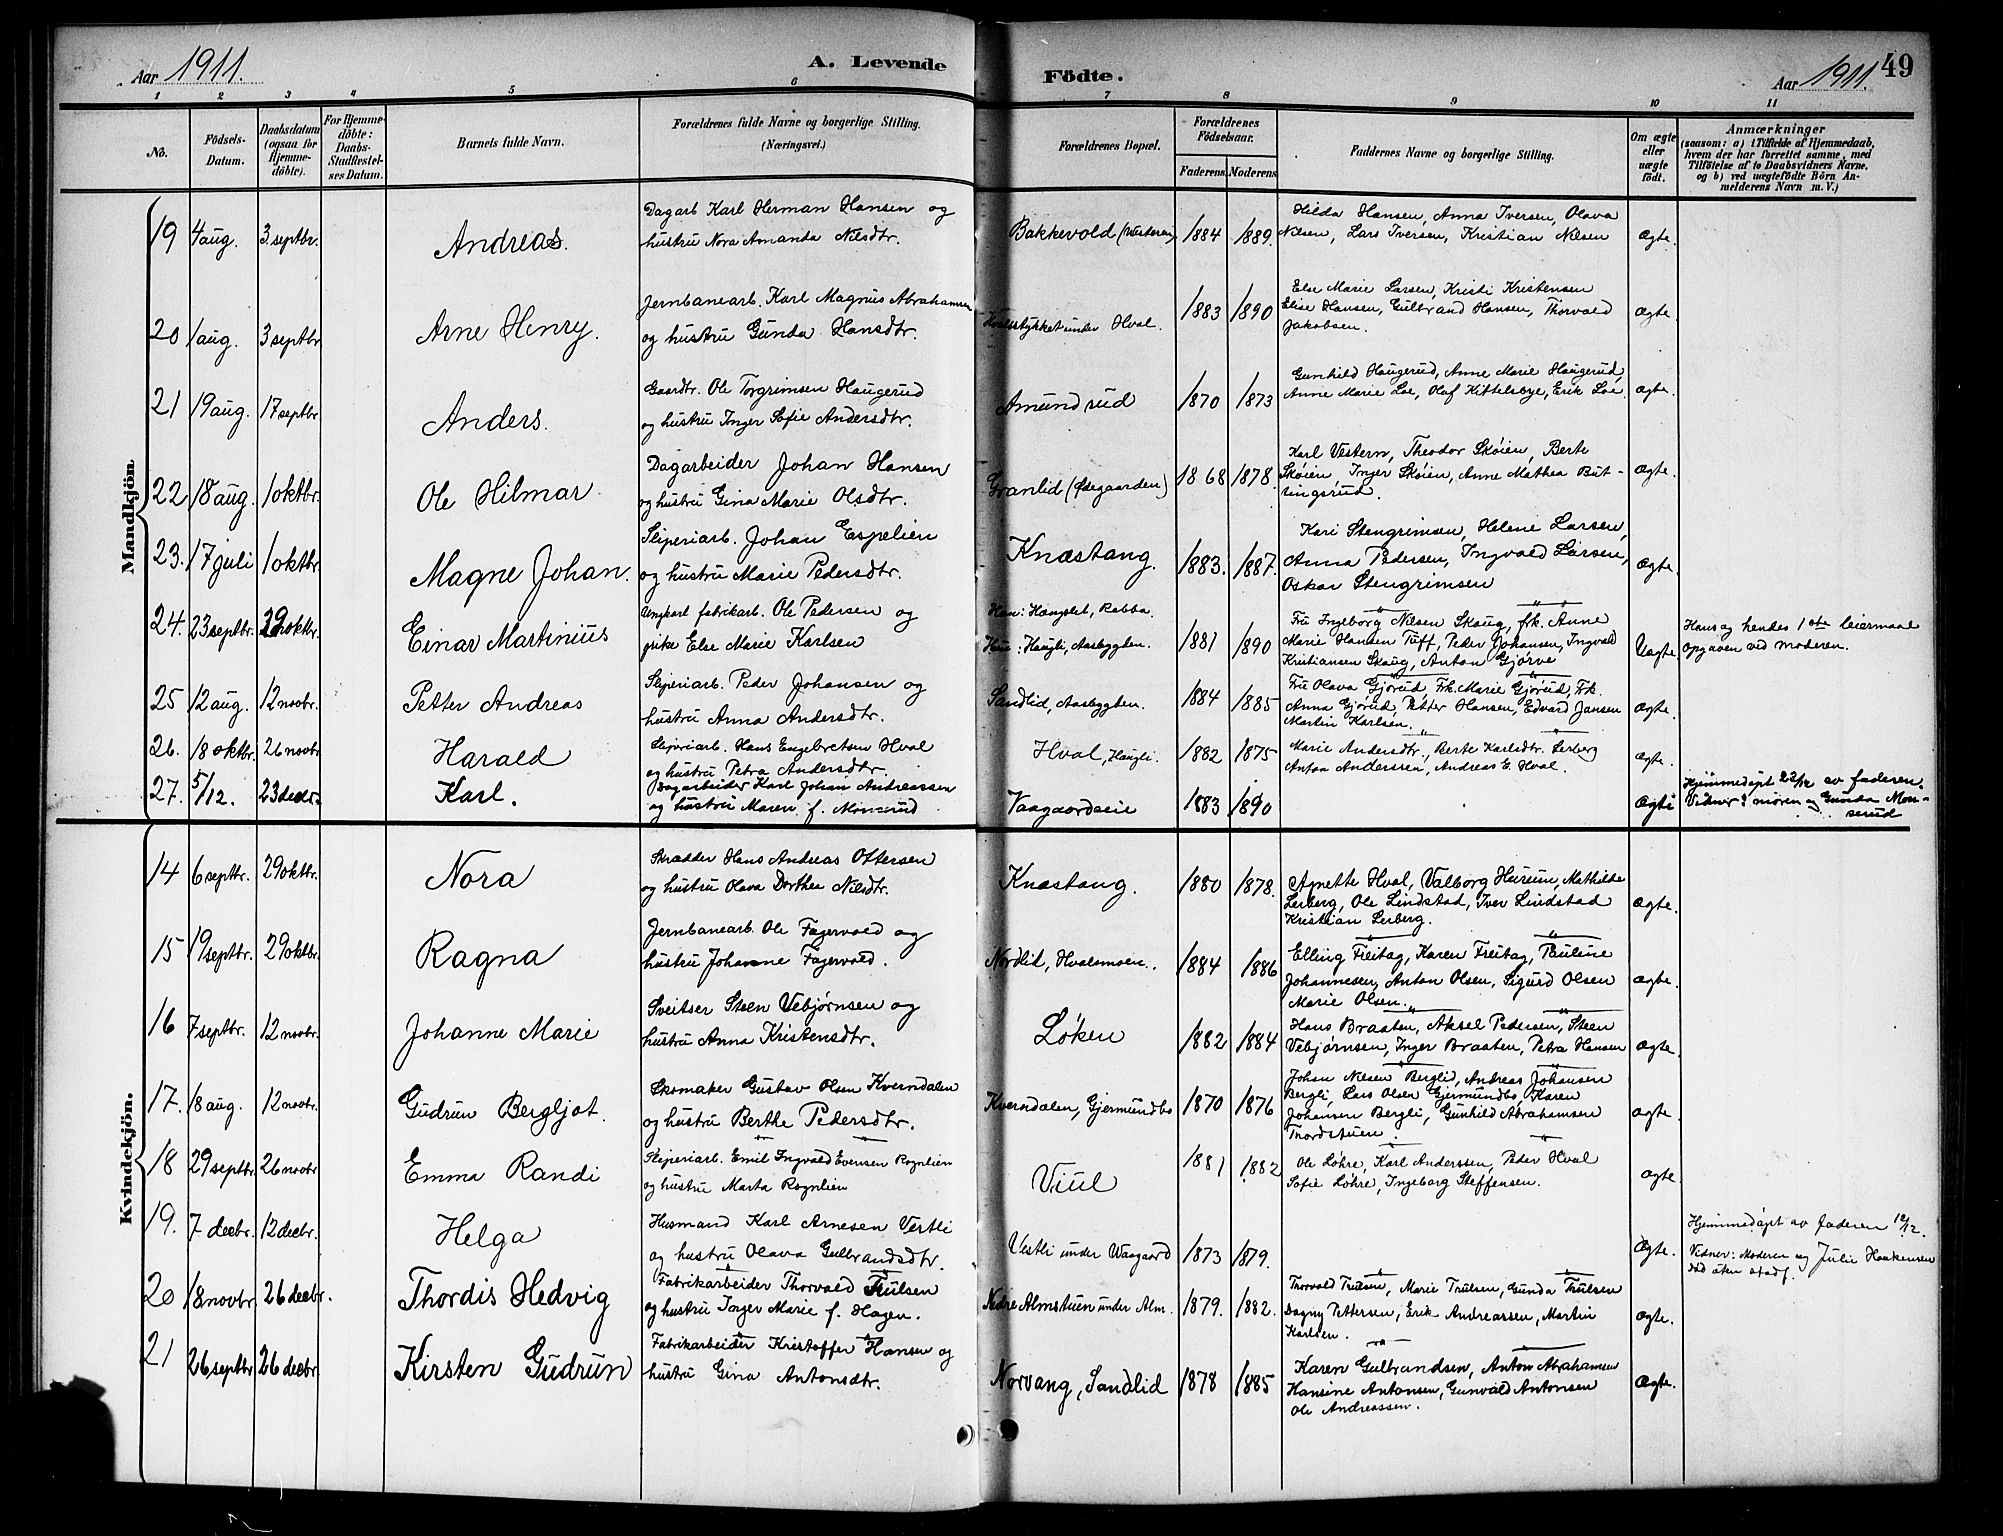 Aar 1911.
A. Levende
Födte.
Aar 1911.
49
1 2 3 4 5 6 7 8 9 10 11
No.
Födsels-
Datum.
Daabsdatum
(ogsaa for
Hjemme-
döbte).
For Hjemme-
döbte:
Daabs-
Stadfæstel-
ses Datum.
Barnets fulde Navn.
Forældrenes fulde Navne og borgerlige Stilling.
(Næringsvei.)
Forældrenes Bopæl.
Forældrenes
Födselsaar.
Faderens.
Moderens
Faddernes Navne og borgerlige Stilling.
Om ægte
eller
uægte
födt.
Anmærkninger
(saasom: a) i Tilfælde af Hjemmedaab,
hvem der har forrettet samme, med
Tilföielse af to Daabsvidners Navne.
og b) ved uægtefödte Börn An-
melderens Navn m. V.)
Mandkjön.
19 4 aug. 3 septbr. Andreas.
Dagarb Karl Herman Hansen og
hustru Nora Amanda Nilsdtr.
Bakkevold 1884 1889.
Hilda Hansen, Anna Iversen, Olava
Nilsen, Lars Iversen, Kristian Nilsen
Ægte.
20 1 aug. 3 septbr Arne Henry.
Jernbanearb. Karl Magnus Abrahamsen
og hustru Gunda Hansdtr.
under Hval. 1883 1890
Else Marie Larsen, Kristi Kristensen
Elise Hansen, Gulbrand Hansen, Thorvald
Jakobsen.
Ægte.
21 19 aug. 17 septbr Anders.
Gaardbr. Ole Torgrimsen Haugerud
og hustru Inger Sofie Andersdtr.
Amundrud 1870 1873
Gunhild Haugerud, Anne Marie Haugerud,
Anne Marie Loe, Olaf Kittelsbye, Erik Loe.
Ægte.
22 18 aug. 1 oktbr. Ole Hilmar.
Dagarbeider Johan Hansen
og hustru Gina Marie Olsdtr.
Granlid (Ødegaarden) 1868 1878.
Karl Vestern, Theodor Skøien, Berte
Skøien, Inger Skøien, Anne Mathea But-
tingsrud.
Ægte.
23. 17 juli 1 oktbr Magne Johan.
Sliperiarb. Johan Espelien
og hustru Marie Pedersdtr.
Knæstang. 1883. 1887.
Kari Stengrimsen, Helene Larsen,
Anna Pedersen, Ingvald Larsen,
Oskar Stengrimsen
Ægte.
24. 23 septbr. 29 oktbr. Einar Martinius
Ungkarl fabrikarb. Ole Pedersen og
pike Else Marie Karlsen
Han: Hengslet, Rabba.
Hun: Haugli, Aasbygden. 1881 1890
Fru Ingeborg Nilsen Skaug, frk. Anne
Marie Hansen Tuff, Peder Johansen, Ingvald
Kristiansen Skaug, Anton Gjørve
Uægte.
Hans og hendes 1ste leiermaal
opgaven ved moderen.
25 12 aug. 12 novbr. Petter Andreas
Sliperiarb. Peder Johansen og
hustru Anna Andersdtr.
Sandlid, Aasbygden. 1884 1885
Fru Olava Gjørud, Frk. Marie Gjørud, Frk.
Anna Gjørud, Petter Hansen, Edvard Jansen
Martin Karlsen.
Ægte.
26. 18 oktbr. 26 novbr. Harald
Sliperiarb. Hans Engebretsen Hval
og hustru Petra Andersdtr.
Hval, Haugli. 1882 1875
Marie Andersdtr, Berte Karlsdtr. Lerberg
Anton Anderssen, Andreas E. Hval.
Ægte.
27. 5/12. 23 decbr. Karl.
Dagarbeider Karl Johan Andreassen
og hustru Maren f. Monserud
Vaagaardseie 1883 1890
Ægte
Hjemmedøpt 22/12 av faderen.
Vidner: moren og Gunda Mon-
serud
Kvindekjön.
14 6 septbr. 29 oktbr. Nora
Skrædder Hans Andreas Ottersen
og hustru Olava Dorthea Nilsdtr.
Knæstang. 1880 1878.
Agnette Hval, Valborg Hurum, Mathilde
Lerberg, Ole Lindstad, Iver Lindstad
Kristian Lerberg.
Ægte.
15 19 septbr. 29 oktbr. Ragna
Jernbanearb. Ole Fagervold og
hustru Johanne Fagervold.
Nordlid, Hvalsmoen. 1884 1886
Elling Freitag, Karen Freitag, Pauline
Johannesen, Anton Olsen, Sigurd Olsen
Marie Olsen.
Ægte.
16 7 septbr. 12 novbr. Johanne Marie
Sveitser Steen Vebjørnsen og
hustru Anna Kristensdtr.
Løken 1882 1884
Hans Braaten, Aksel Pedersen, Steen
Vebjørnsen, Inger Braaten, Petra Hansen
Ægte.
17. 18 aug. 12 novbr. Gudrun Bergljot.
Skomaker Gustav Olsen Kverndalen
og hustru Berthe Pedersdtr.
Kverndalen, Gjermundbo 1870 1876
Johan Nilsen Berglid, Andreas Johansen
Bergli, Lars Olsen Gjermundbo, Karen
Johansen Bergli, Gunhild Abrahamsen
Thordstuen.
Ægte.
18 29 septbr. 26 novbr Emma Randi
Sliperiarb. Emil Ingvald Evensen Rognlien
og hustru Marta Rognlien
Viul 1881 1882
Ole Løhre, Karl Anderssen, Peder Hval
Sofie Løhre, Ingeborg Steffensen.
ægte.
19. 7 decbr. 12 decbr. Helga
Husmand Karl Arnesen Vestli
og hustru Olava Gulbrandsdtr.
Vestli under Waagaard 1873 1879.
Ægte.
Hjemmedøpt av Faderen 12/12.
Vidner: Moderen og Julie Haakensen
20 18 novbr. 26 decbr. Thordis Hedvig
Fabrikarbeider Thorvald Trulsen
og hustru Inger Marie f. Hagen.
Nedre Almstuen under Alm. 1879. 1882.
Thorvald Trulsen, Marie Trulsen, Gunda Trulsen
Dagny Pettersen, Erik Andreassen, Martin
Karlsen.
Ægte.
21 26 septbr 26 decbr. Kirsten Gudrun
Fabrikarbeider Kristoffer Hansen og
hustru Gina Antonsdtr.
Norvang, Sandlid 1878 1885
Karen Gulbrandsen, Anton Abrahamsen
Hansine Antonsen, Gunvald Antonsen
Ole Andreassen.
Ægte.